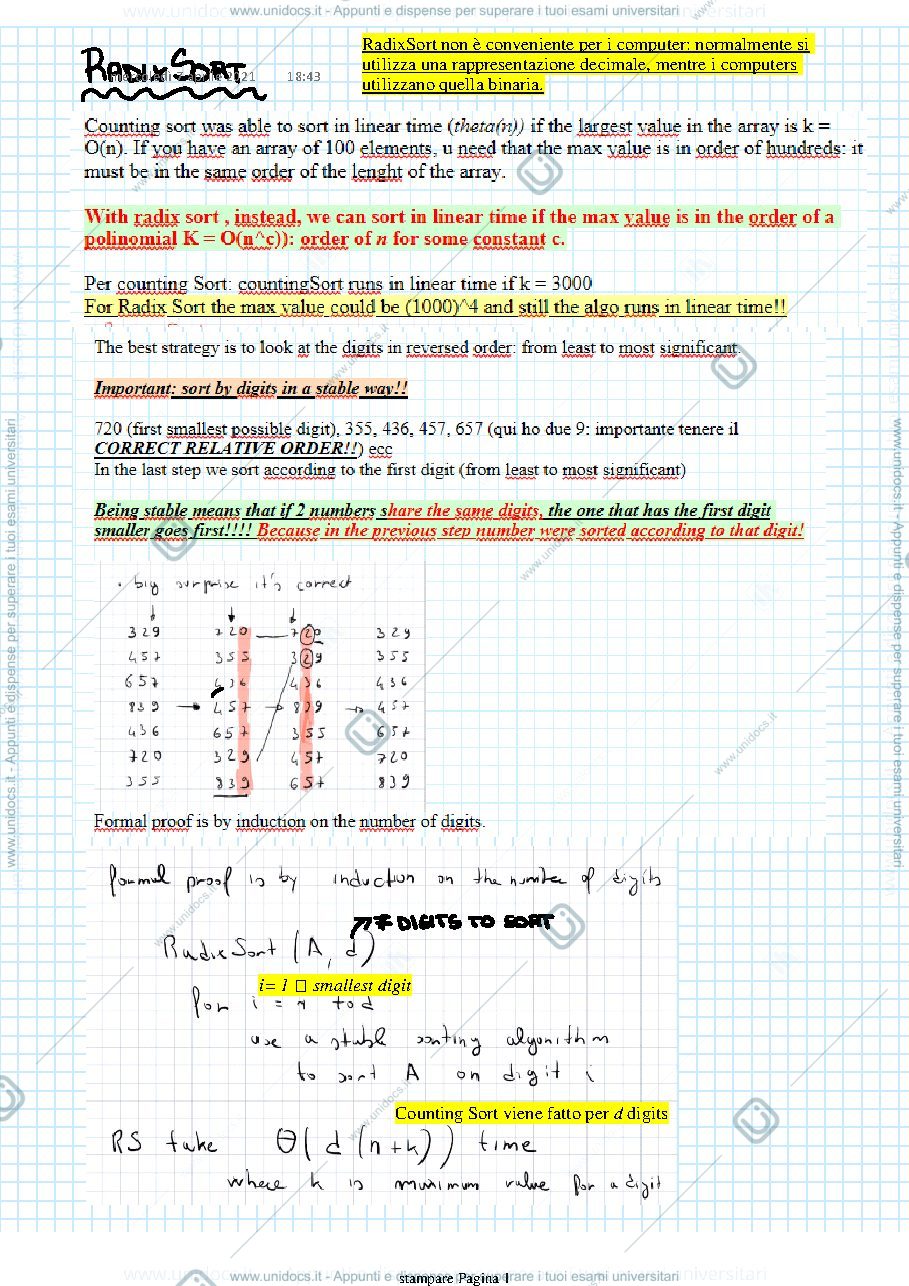 www.unidocs.it - Appunti e dispense per superare i tuoi esami universitari
RADIXSORT
mercoledì 7 aprile 2021 18:43
RadixSort non è conveniente per i computer: normalmente si
utilizza una rappresentazione decimale, mentre i computers
utilizzano quella binaria.
Counting sort was able to sort in linear time (theta(n)) if the largest value in the array is k =
O(n). If you have an array of 100 elements, u need that the max value is in order of hundreds: it
must be in the same order of the lenght of the array.
With radix sort , instead, we can sort in linear time if the max value is in the order of a
polinomial K = O(n^c)): order of n for some constant c.
Per counting Sort: countingSort runs in linear time if k = 3000
For Radix Sort the max value could be (1000)^4 and still the algo runs in linear time!!
The best strategy is to look at the digits in reversed order: from least to most significant.
Important: sort by digits in a stable way!!
720 (first smallest possible digit), 355, 436, 457, 657 (qui ho due 9: importante tenere il
CORRECT RELATIVE ORDER!!) ecc
In the last step we sort according to the first digit (from least to most significant)
Being stable means that if 2 numbers share the same digits, the one that has the first digit
smaller goes first!!!! Because in the previous step number were sorted according to that digit!
• big surprise it's correct
329 720 720 329
457 355 329 355
657 436 436 436
839 → 457 → 839 → 457
436 657 355 657
720 329 457 720
355 839 657 839
Formal proof is by induction on the number of digits.
formal proof is by induction on the number of digits
# DIGITS TO SORT
RadixSort (A, d)
i= 1 □ smallest digit
for i = 1 to d
use a stable sorting algorithm
to sort A on digit i
Counting Sort viene fatto per d digits
RS take Θ( d (n+k)) time
where k is maximum value for a digit
stampare Pagina 1
www.unidocs.it - Appunti e dispense per superare i tuoi esami universitari
www.unidocs.it - Appunti e dispense per superare i tuoi esami universitari
www.unidocs.it - Appunti e dispense per superare i tuoi esami universitari